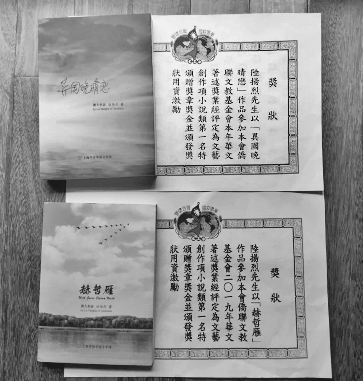 異國晚晴戀
獎狀
陸揚烈先生以「異國晚
晴戀」作品參加本會僑
聯文教基金會本年華文
著述獎業經評定為文藝
創作項小說類第一名特
頒贈獎章獎金並頒發獎
狀用資激勵
赫哲雁
獎狀
陸揚烈先生以「赫哲雁」
作品參加本會僑聯文教
基金會二〇一九年華文
著述獎業經評定為文藝
創作項小說類第一名特
頒贈獎章獎金並頒發獎
狀用資激勵